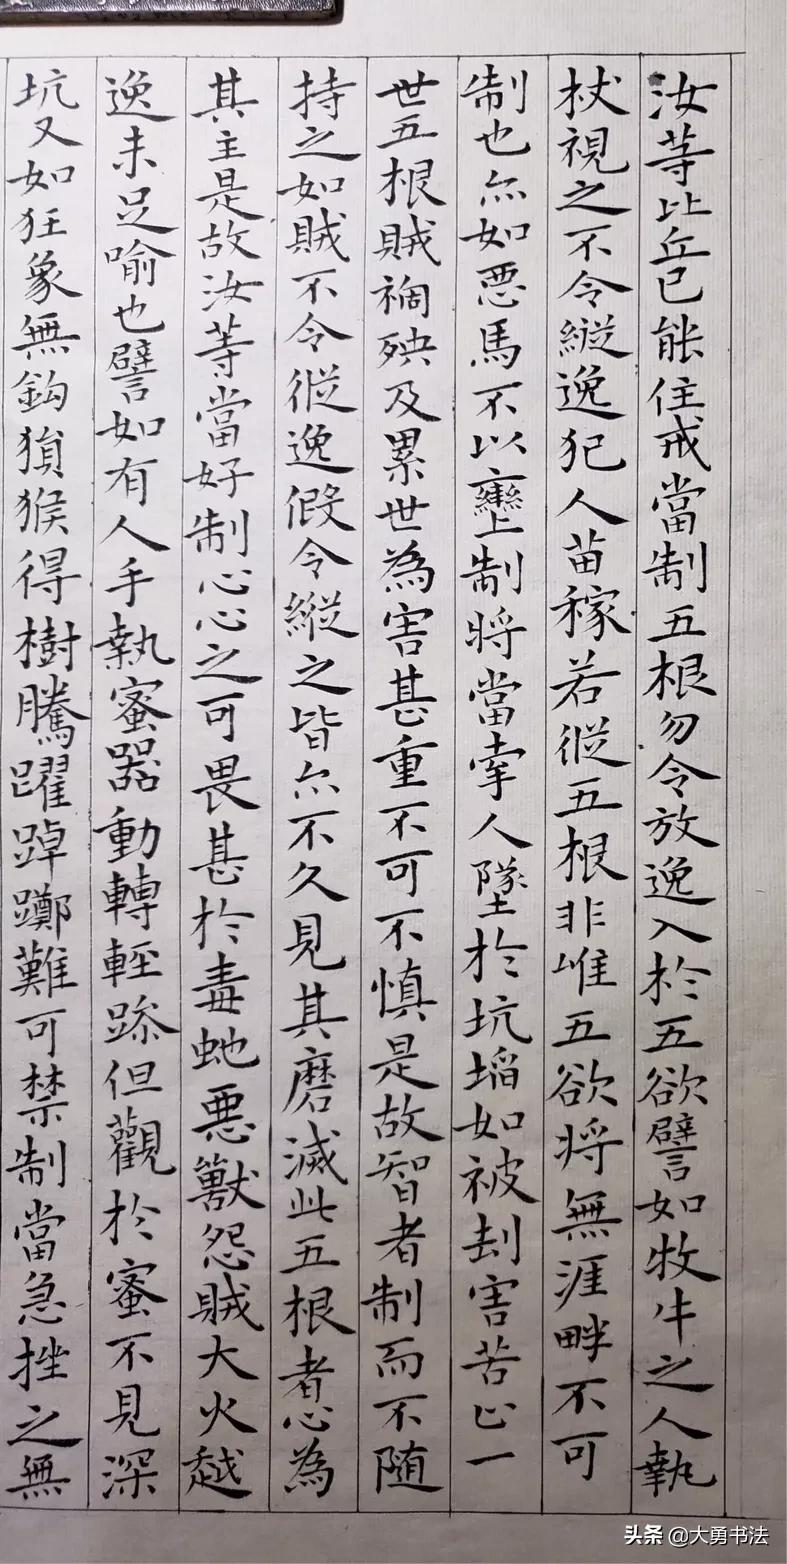 汝等比丘已能住戒當制五根勿令放逸入於五欲譬如牧牛之人執
杖視之不令縱逸犯人苗稼若縱五根非唯五欲將無涯畔不可
制也尒如惡馬不以轡制將當牽人墜於坑埳如被刦害苦止一
世五根賊禍殃及累世為害甚重不可不慎是故智者制而不隨
持之如賊不令從逸假令縱之皆尒不久見其磨滅此五根者心為
其主是故汝等當好制心心之可畏甚於毒虵惡獸怨賊大火越
逸未足喻也譬如有人手執蜜器動轉輕躁但觀於蜜不見深
坑又如狂象無鈎猨猴得樹騰躍踔躑難可禁制當急挫之無
头条 @大勇书法